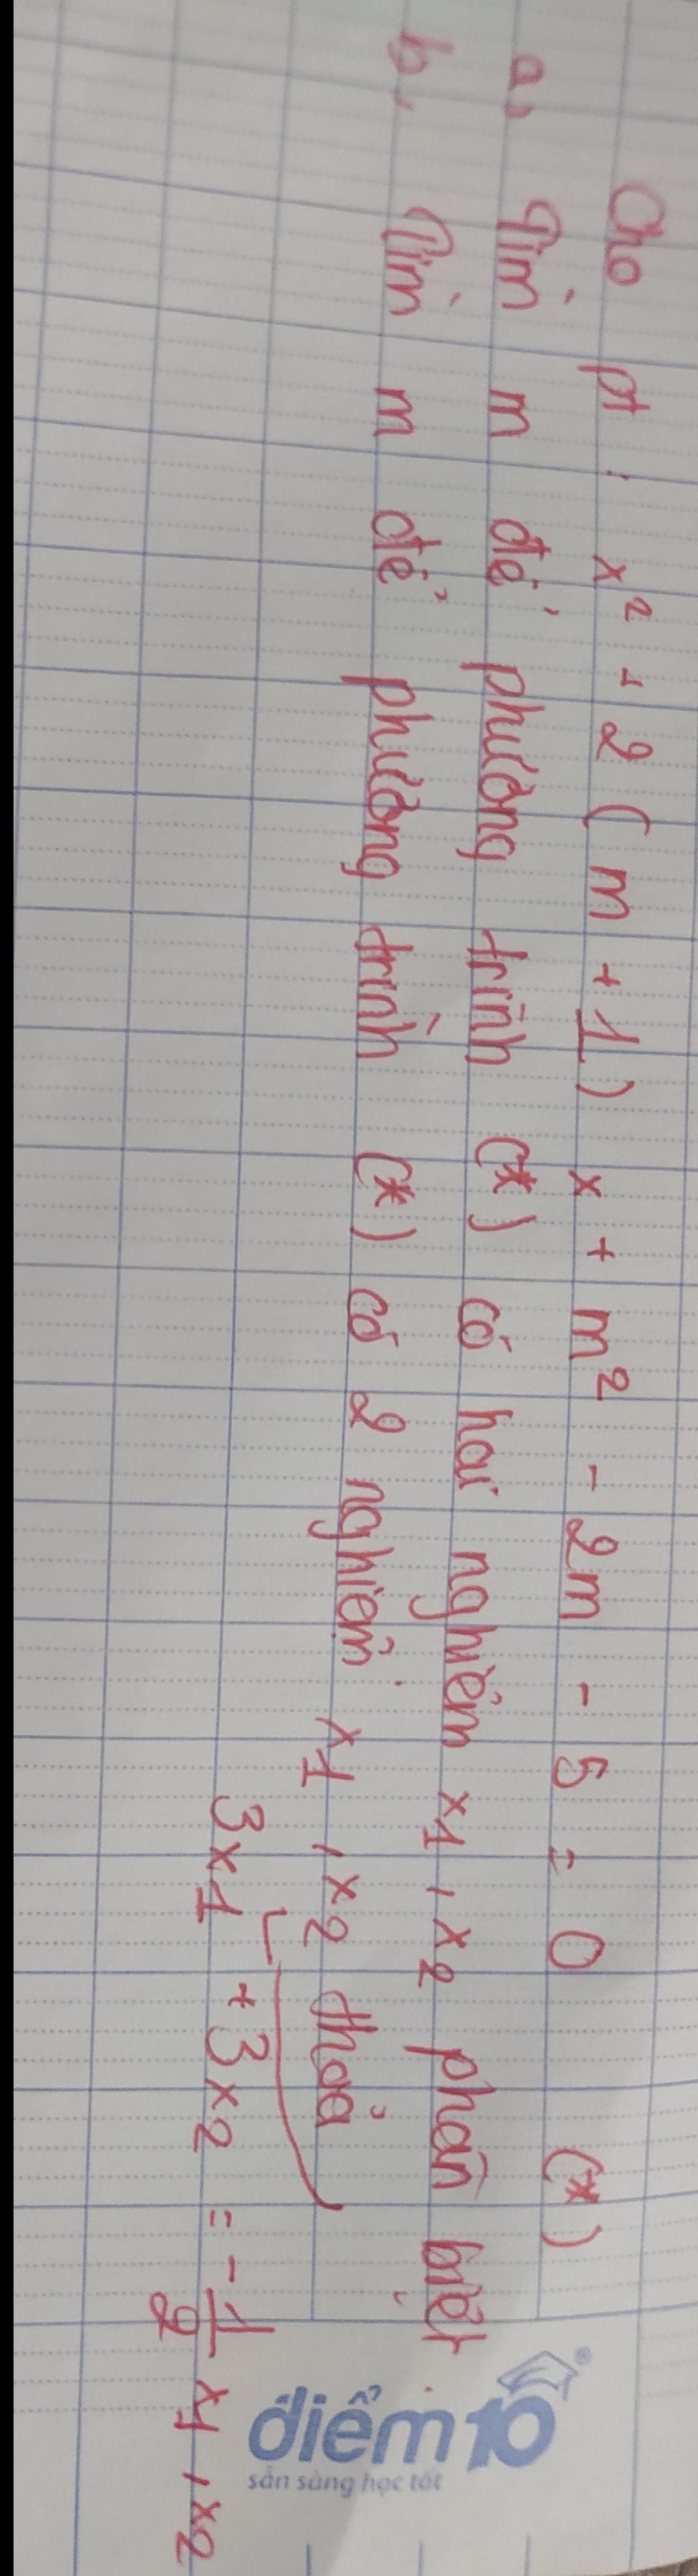 Cho pt : x² + 2 ( m + 1 ) x + m² - 2m - 5 = 0 (*)
a, Tìm m để phương trình (*) có hai nghiệm x1 , x2 phân biệt
b, Tìm m để phương trình (*) có 2 nghiệm x1 , x2 thỏa
3x1 + 3x2 = - 1/2 x1 , x2
điểm10®
sẵn sàng học tốt